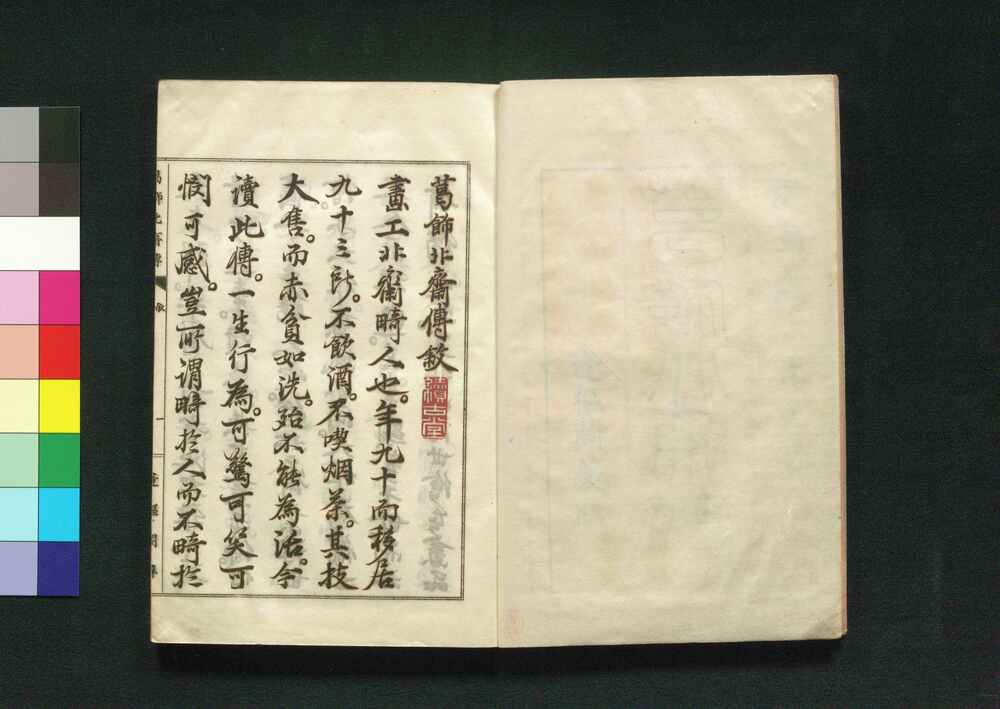 葛飾北齋傳敍
畫工北齋畸人也。年九十而移居
九十三所。不飲酒。不喫烟茶。其技
大售。而赤貧如洗。殆不能為活。今
讀此傳。一生行為。可驚可笑可
憫可感。豈所謂畸於人而不畸於
葛飾北齋傳 敍 一